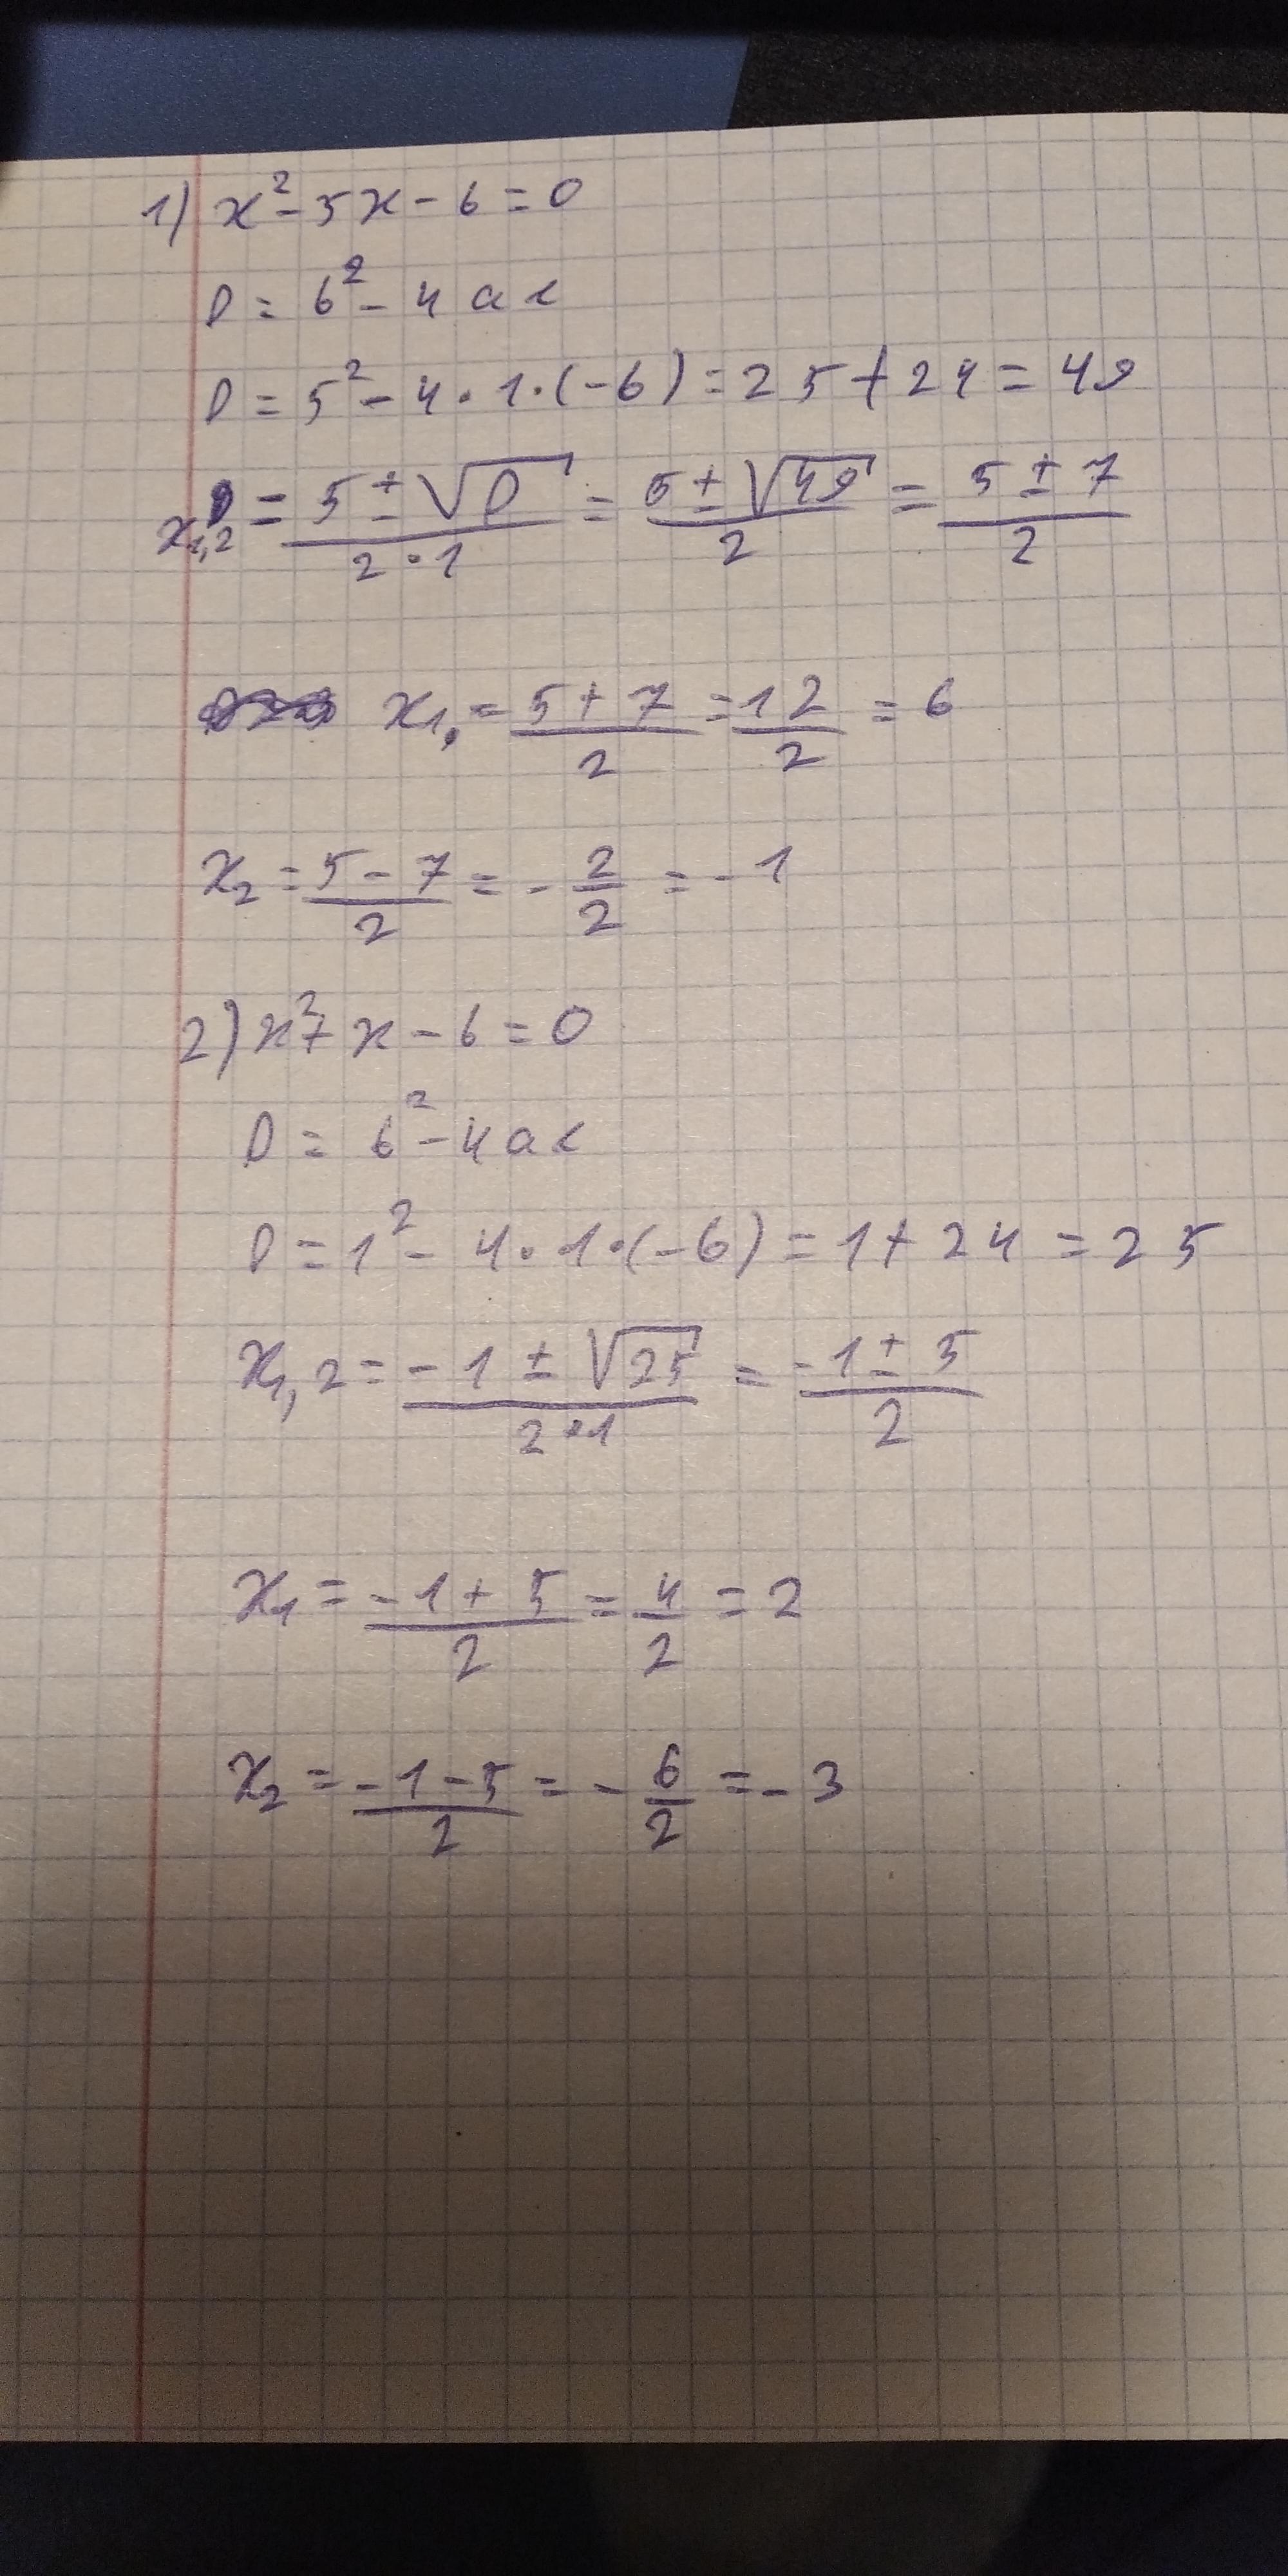 1) x² - 5x - 6 = 0
D = b² - 4ac
D = 5² - 4·1·(-6) = 25 + 24 = 49
x₁,₂ = (5 ± √D)/(2·1) = (5 ± √49)/2 = (5 ± 7)/2
x₁ = (5 + 7)/2 = 12/2 = 6
x₂ = (5 - 7)/2 = -2/2 = -1
2) x² + x - 6 = 0
D = b² - 4ac
D = 1² - 4·1·(-6) = 1 + 24 = 25
x₁,₂ = (-1 ± √25)/(2·1) = (-1 ± 5)/2
x₁ = (-1 + 5)/2 = 4/2 = 2
x₂ = (-1 - 5)/2 = -6/2 = -3